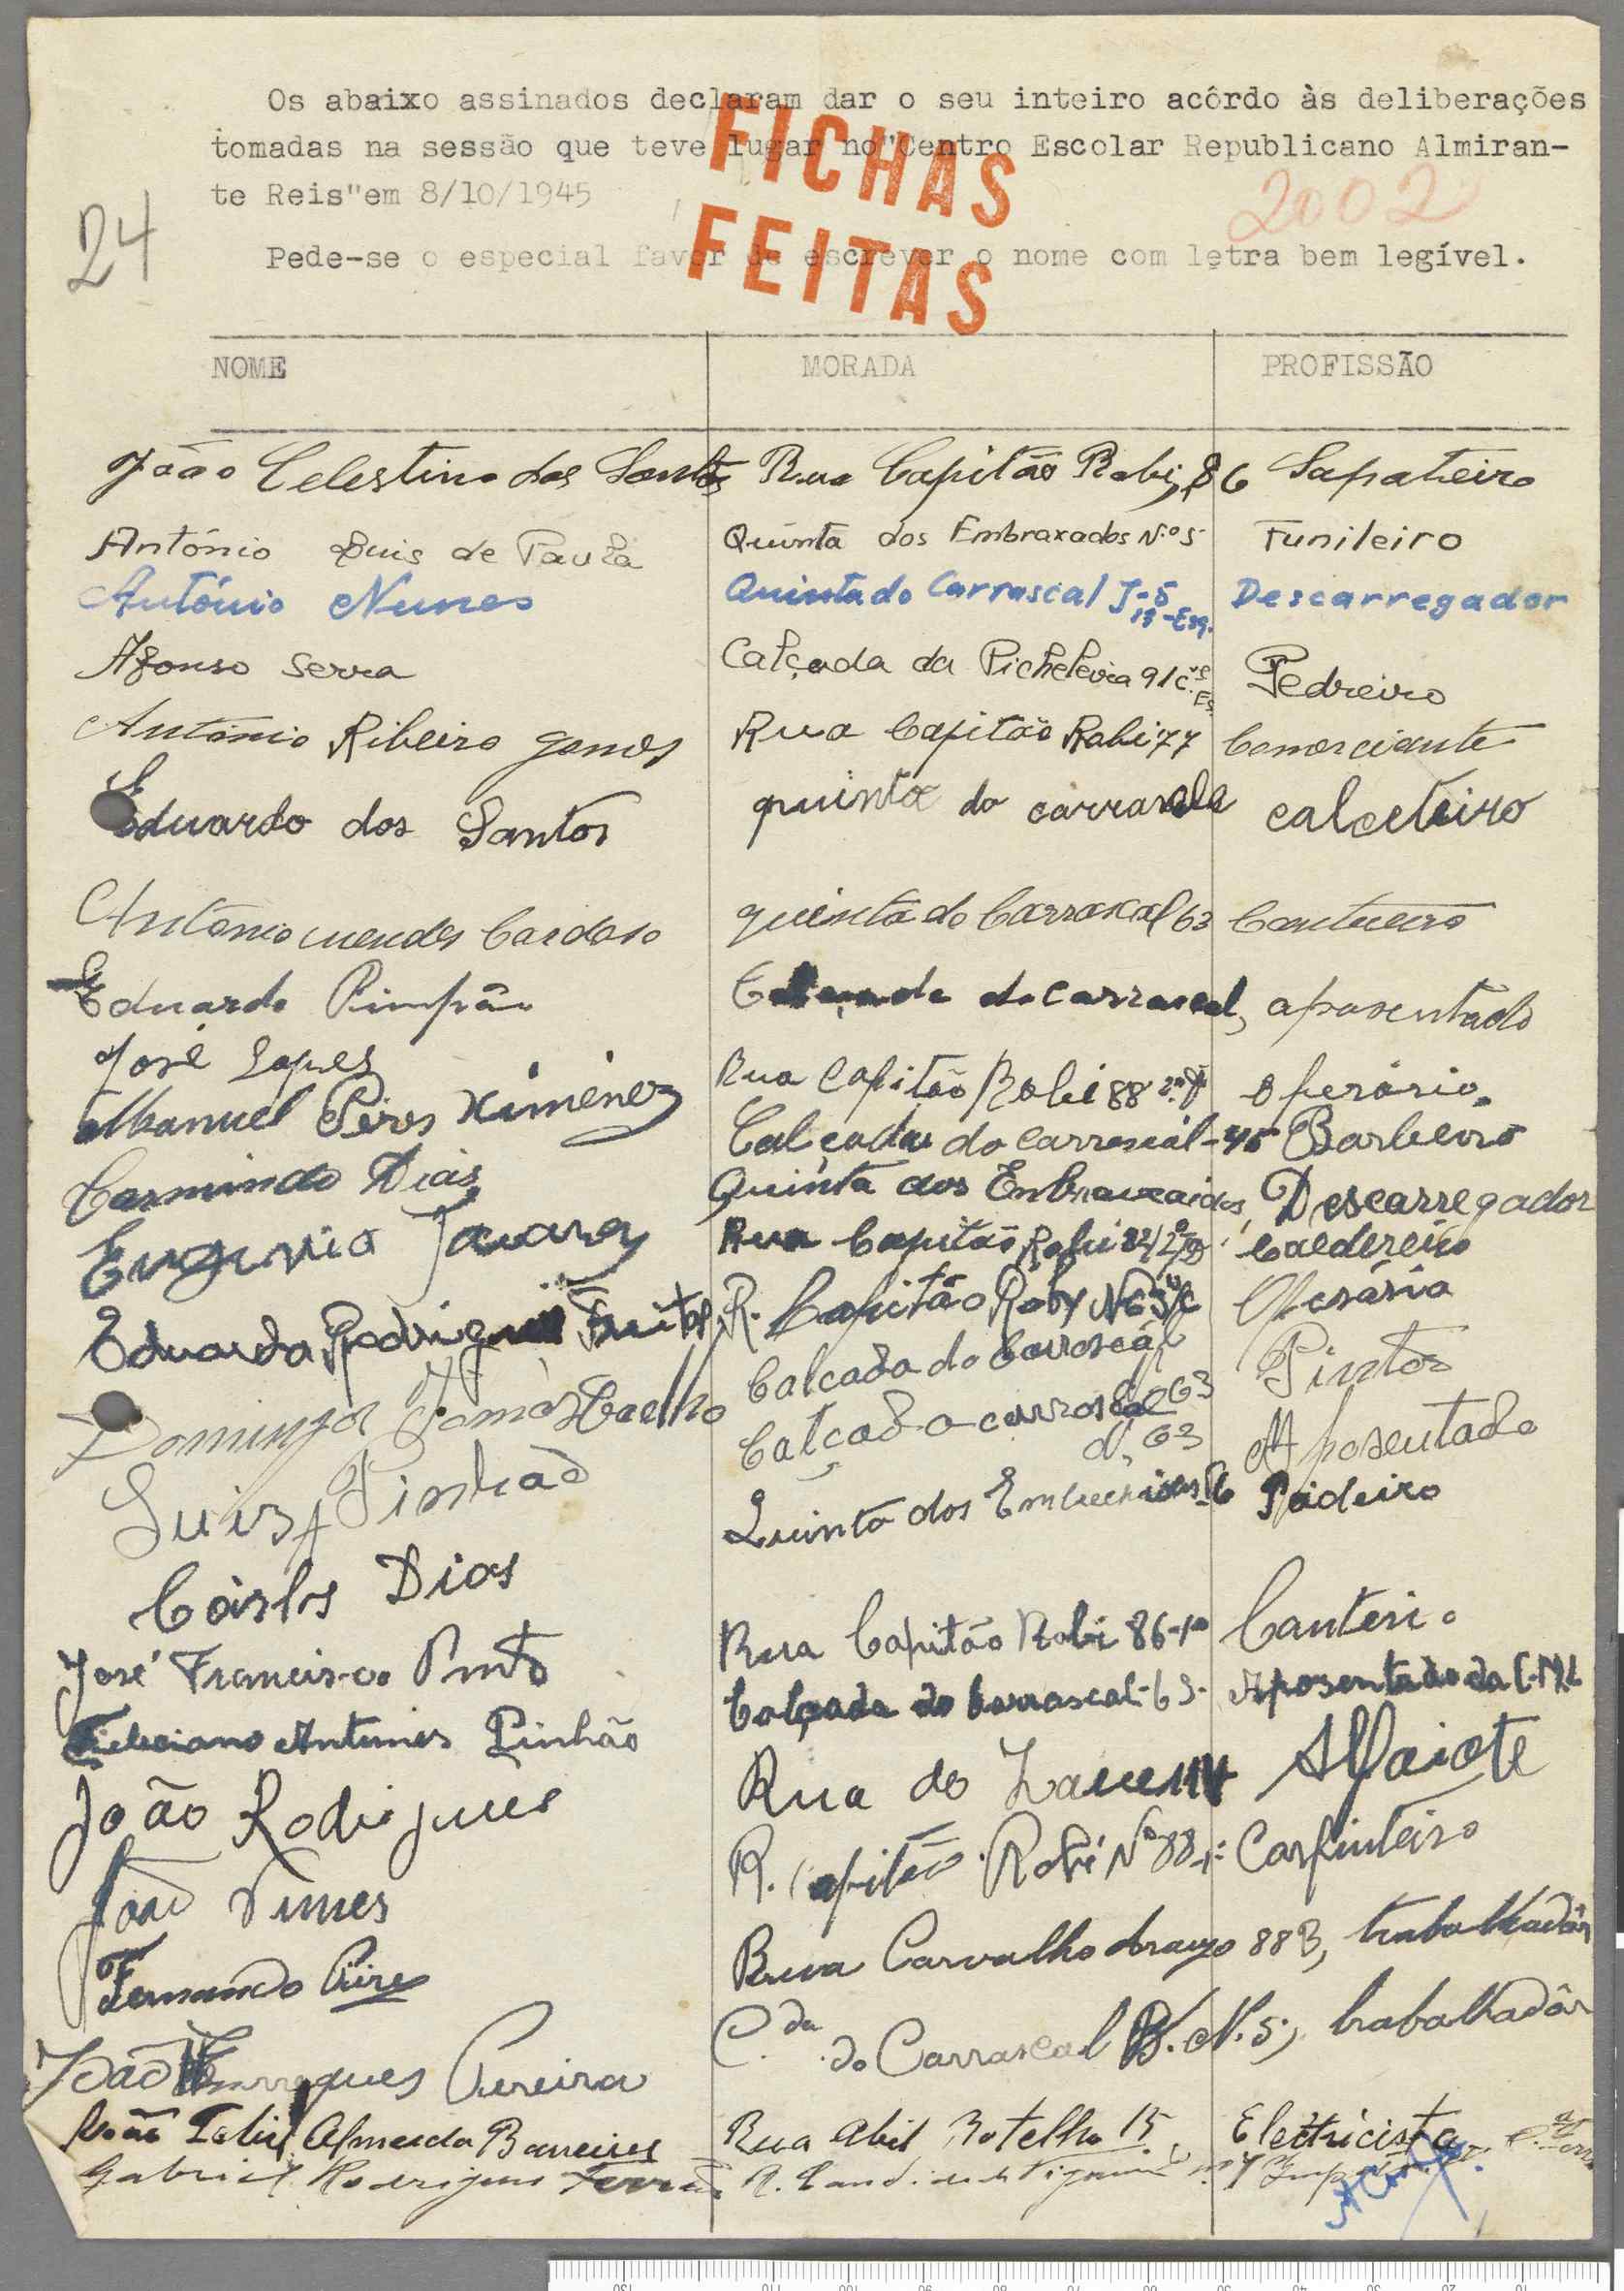 Os abaixo assinados declaram dar o seu inteiro acôrdo às deliberações
tomadas na sessão que teve lugar no "Centro Escolar Republicano Almiran-
te Reis" em 8/10/1945
FICHAS
FEITAS
2002
24
Pede-se o especial favor de escrever o nome com letra bem legível.
NOME MORADA PROFISSÃO
João Celestino dos Santos Rua Capitão Robi, 86 Sapateiro
António Luis de Paula Quinta dos Embraxados N.º 5 Funileiro
António Nunes Quinta do Carrascal J-5 Descarregador
Afonso Serra Calçada da Picheleira 91 Pedreiro
António Ribeiro gomes Rua Capitão Robi 77 Comerciante
Eduardo dos Santos quinta do carrascale calceteiro
Antonio mendes Cardoso quinta do Carrascal 63 Canteeiro
Eduardo Pimpão do carrascal, aposentado
José Lopes Rua Capitão Robi 88 Operário.
Manuel Peres Ximénez Calçada do carrascál-45 Barbeiro
Carmindo Dias Quinta dos Descarregador
Eugenio Tavares Rua Capitão Robi 82 Caldereiro
Eduarda Freitas R. Capitão Roby Operária
Domingos Tomás Coelho Calcada do Carroscál Pintor
63
Luis Pinhaõ Calçada carroscal Aposentado
N, 63
Cárlos Dias Quinta dos Paideiro
José Francisco Pinto Rua Capitão Robi 86-1º Canteri o
Feliciano Antunes Pinhão Calçada do Carrascal-63- Aposentado da C.M.L
João Rodrigues Rua do Alfaiate
João Nunes R. Capitão Robi Nº 88 Carpinteiro
Fernando Pires Ruva Carvalho Araujo 88 B, trabalhadôr
João Henrriques Pereira C.da do Carrascal N. 5, trabalhadôr
João Almeida Barreiros Rua Abel Botelho 15 Electricista
Gabriel Rodrigues R.